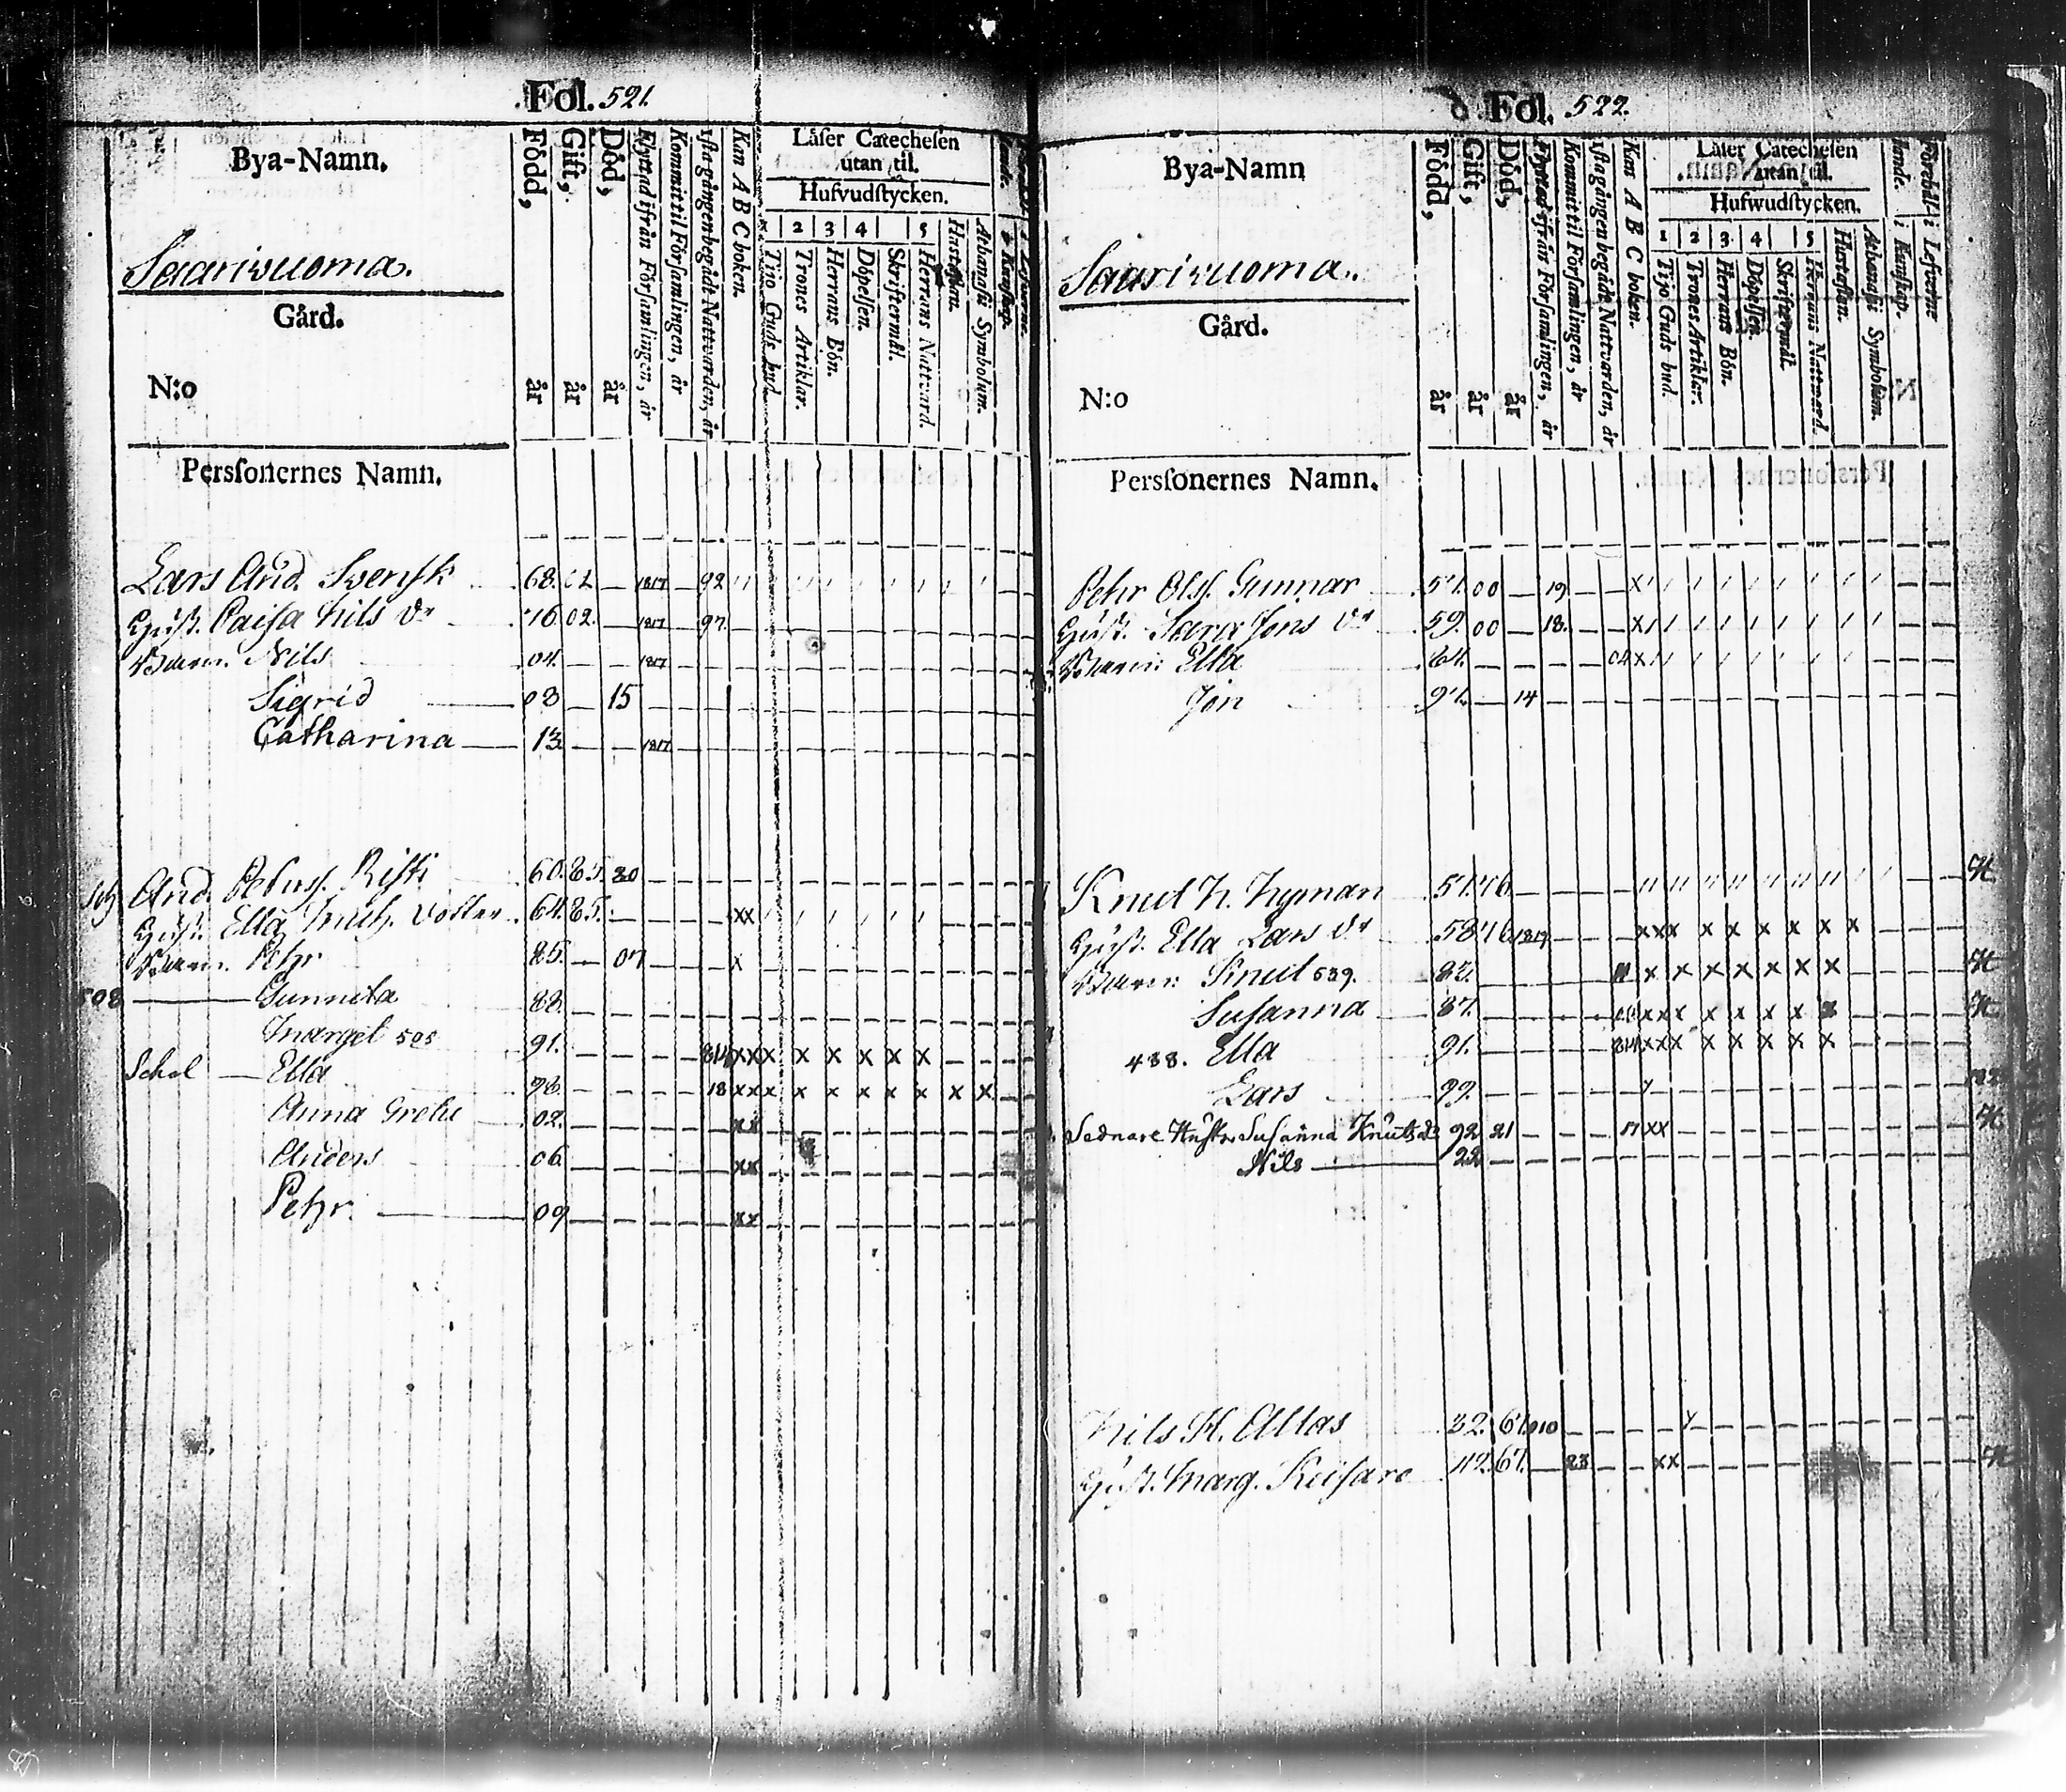 Fol. 521.
Bya-Namn.
Saarivuoma.
Gård.
N:o
Persſonernes Namn.
Född, år
Gift, år
Död, år
Flyttad ifrån Församlingen, år
Kommit til Församlingen, år
1sta gången begådt Nattvarden, år
Kan A B C boken.
Läſer Catecheſen
utan til.
Hufvudſtycken.
2 3 4 5
Tijo Guds bud
Trones Artiklar.
Herrans Bön.
Döpelſen.
Skriftermål.
Herrans Nattvard.
Huſtaflan.
Athanaſii Symbolum.
Lars And. Svenſk 68. 02 — 1817 — 92
Huſt. Caiſa Nils Dr 76. 02. — 1817 — 97.
Barn. Nils 04. — 1817
Sigrid 03 — 15
Catharina 13. — 1817
And. Pehrſ. Riſti 60. 85. 20
Huſt. Ella dotter 64. 85. xx
Barn. Pehr 85. — 07 x
508 Gunnila 88.
Marget 505 91. 814 xxx x x x x x
Schol — Ella 98. 18 xxx x x x x x x x
Anna Greta 02. xx
Anders 06. xx
Pehr 09 xx
Fol. 522.
Bya-Namn
Saarivuoma.
Gård.
N:o
Persſonernes Namn.
Född, år
Gift, år
Död, år
Flyttad ifrån Församlingen, år
Kommit til Församlingen, år
1sta gången begådt Nattvarden, år
Kan A B C boken.
Läſer Catecheſen
utan til.
Hufwudſtycken.
1 2 3 4 5
Tijo Guds bud.
Trones Artiklar.
Herrans Bön.
Döpelſen.
Skriftermål.
Herrans Nattvard.
Huſtaflan.
Athanaſii Symbolum.
i Kunſkap.
i Lefverne
Pehr Olſ. Gunnar 57. 00 — 19 — x
Huſt. Sara Jons Dr 59. 00 — 18. — x
Barn: Ella 04 x
Jon 97. — 14
Knut N. Nyman 51. 76.
Huſt. Ella Lars Dr 58 76 1817 xxx x x x x x x
Barn: Knut 539. 82. x x x x x x x
Suſanna 87. xxx x x x x
488. Ella 91. 814 xxx x x x x x
Lars 99.
Sednare Huſtr. Suſanna Knuts d. 92 21 17 xx
Nils 22
Nils H. Allas 32. 67. 1810
Huſt. Marg. Keiſare 42. 67. — 23 xx